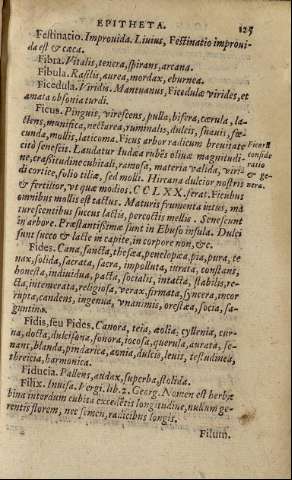 EPITHETA. 125
Festinatio. Improuida. Liuius, Festinatio improui-
da est & cæca.
Fibra. Vitalis, tenera, spirans, arcana.
Fibula. Rasilis, aurea, mordax, eburnea.
Ficedula. Viridis. Mantuanus, Ficedulæ virides, et
amata obsonia turdi.
Ficus. Pinguis, virescens, pulla, bifera, cærula, la-
ctens, munifica, nectarea, ruminalis, dulcis, suauis, fœ-
cunda, mollis, laticoma. Ficus arbor radicum breuitate
citò senescit. Laudatur Indæa rubēs oliuæ magnitudi-
ne, crassitudine cubitali, ramosa, materia valida, viri-
di cortice, folio tiliæ, sed mollis. Hircana dulcior nostris
& fertilior, vt quæ modios. CCLXX. ferat. Ficubus
omnibus mollis est tactus. Maturis frumenta intus, ma
turescentibus succus lactis, percoctis mellis. Senescunt
in arbore. Præstantissimæ sunt in Ebuso insula. Dulci
sunt succo & lacte in capite, in corpore non, &c.
Ficorū
conside
ratio
& ge-
nera.
Fides. Cana, sancta, thesæa, penelopæa, pia, pura, te-
nax, solida, sacrata, sacra, impolluta, iurata, constans,
honesta, indiuidua, pacta, socialis, intacta, stabilis, re-
cta, intemerata, religiosa, vera, firmata, syncera, incor
rupta, candens, ingenua, vnanimis, orestæa, socia, sa-
guntina.
Fidis, seu Fides. Canora, teia, æolia, cyllenia, cur-
ua, docta, dulcisona, sonora, iocosa, querula, aurata, se-
nans, blanda, pindarica, aonia, dulcis, leuis, testudinea,
threicia, harmonica.
Fiducia. Pallens, audax, superba, stolida.
Filix. Inuisa. Vergi. lib. 2. Georg. Nomen est herbæ
bina interdum cubita excedētis longitudine, nullum ge-
rentis florem, nec semen, radicibus longis.
Filum.